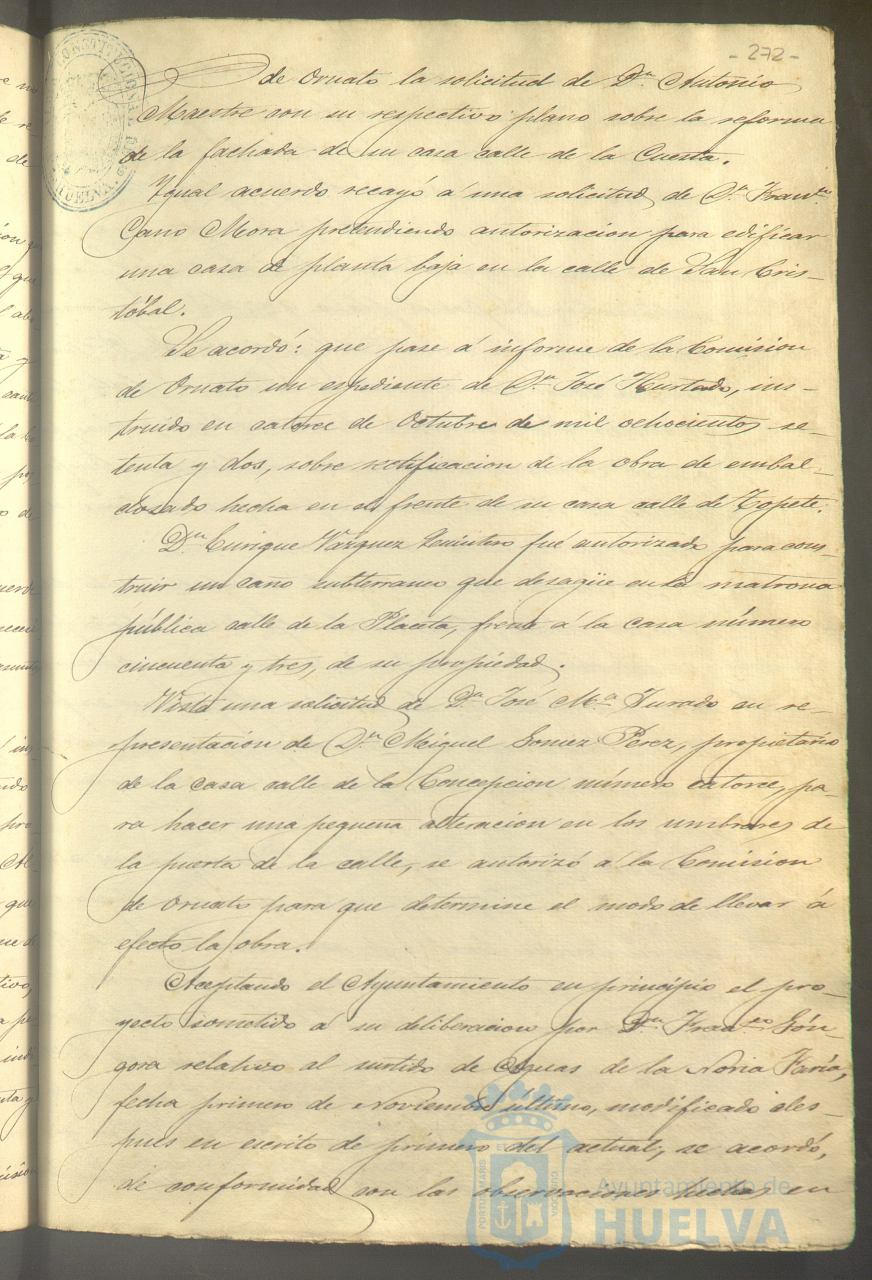 - 272 -
de Ornato la solicitud de Dn. Antonio
Maestre con su respectivo plano sobre la reforma
de la fachada de su casa calle de la Cuesta.
Igual acuerdo recayó á una solicitud de Dn.
Cano Mora pretendiendo autorizacion para edificar
una casa de planta baja en la calle de San Cris-
tóbal.
Se acordó: que pase á informe de la Comision
de Ornato un espediente de Dn. José Hurtado, ins-
truido en catorce de Octubre de mil ochocientos se-
tenta y dos, sobre rectificacion de la obra de embal-
dosado hecha en el frente de su casa calle de Topete.
Dn. Enrique Vazquez Quintero fué autorizado para cons-
truir un caño subterraneo que desagüe en la matrona
pública calle de la Placeta, frente á la casa número
cincuenta y tres, de su propiedad.
Vista una solicitud de Dn. José Ma. Jurado en re-
presentacion de Dn. Miguel Gomez Perez, propietario
de la casa calle de la Concepcion número catorce, pa-
ra hacer una pequeña alteracion en los umbrales de
la puerta de la calle, se autorizó á la Comision
de Ornato para que determine el modo de llevar á
efecto la obra.
Aceptando el Ayuntamiento en principio el pro-
yecto sometido á su deliberacion por Dn. Franco. Gón-
gora relativo al surtido de aguas de la Noria
fecha primero de Noviembre último, modificado des-
pues en escrito de primero del actual, se acordó,
de conformidad con las observaciones hechas en
Ayuntamiento de
HUELVA